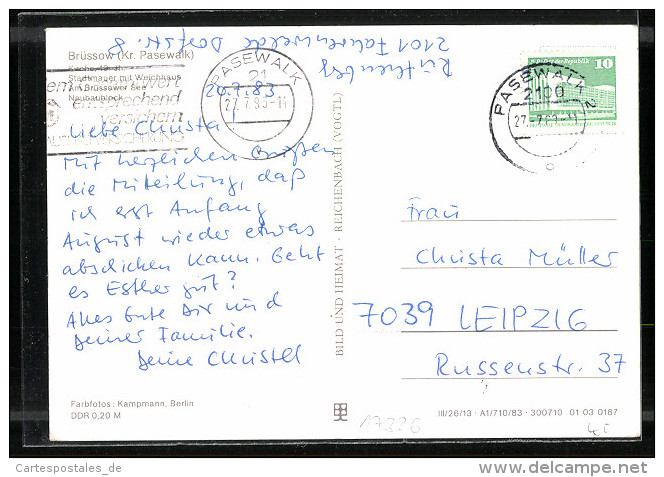 2101 Fahrenwalde Dorfstr. 8
Brüssow (Kr. Pasewalk)
Kirche, 13. Jh.
Stadtmauer mit Weichhaus
Am Brüssower See
Neubaublock
entsprechend
versichern
PASEWALK
21
27.7.83-11
PASEWALK 2
2100
27.-7.83-11
10
20.7.83
Liebe Christa
Mit herzlichen Grüßen
die Mitteilung, daß
ich erst Anfang
August wieder etwas
abschicken kann. Geht
es Esther gut?
Alles Gute Dir und
Deiner Familie.
Deine Christel
BILD UND HEIMAT · REICHENBACH (VOGTL)
Frau
Christa Müller
7039 LEIPZIG
Russenstr. 37
Farbfotos: Kampmann, Berlin
DDR 0,20 M
17326
III/26/13 · A1/710/83 · 300710 01 03 0187
Cartespostales_de
www.delcampe.net